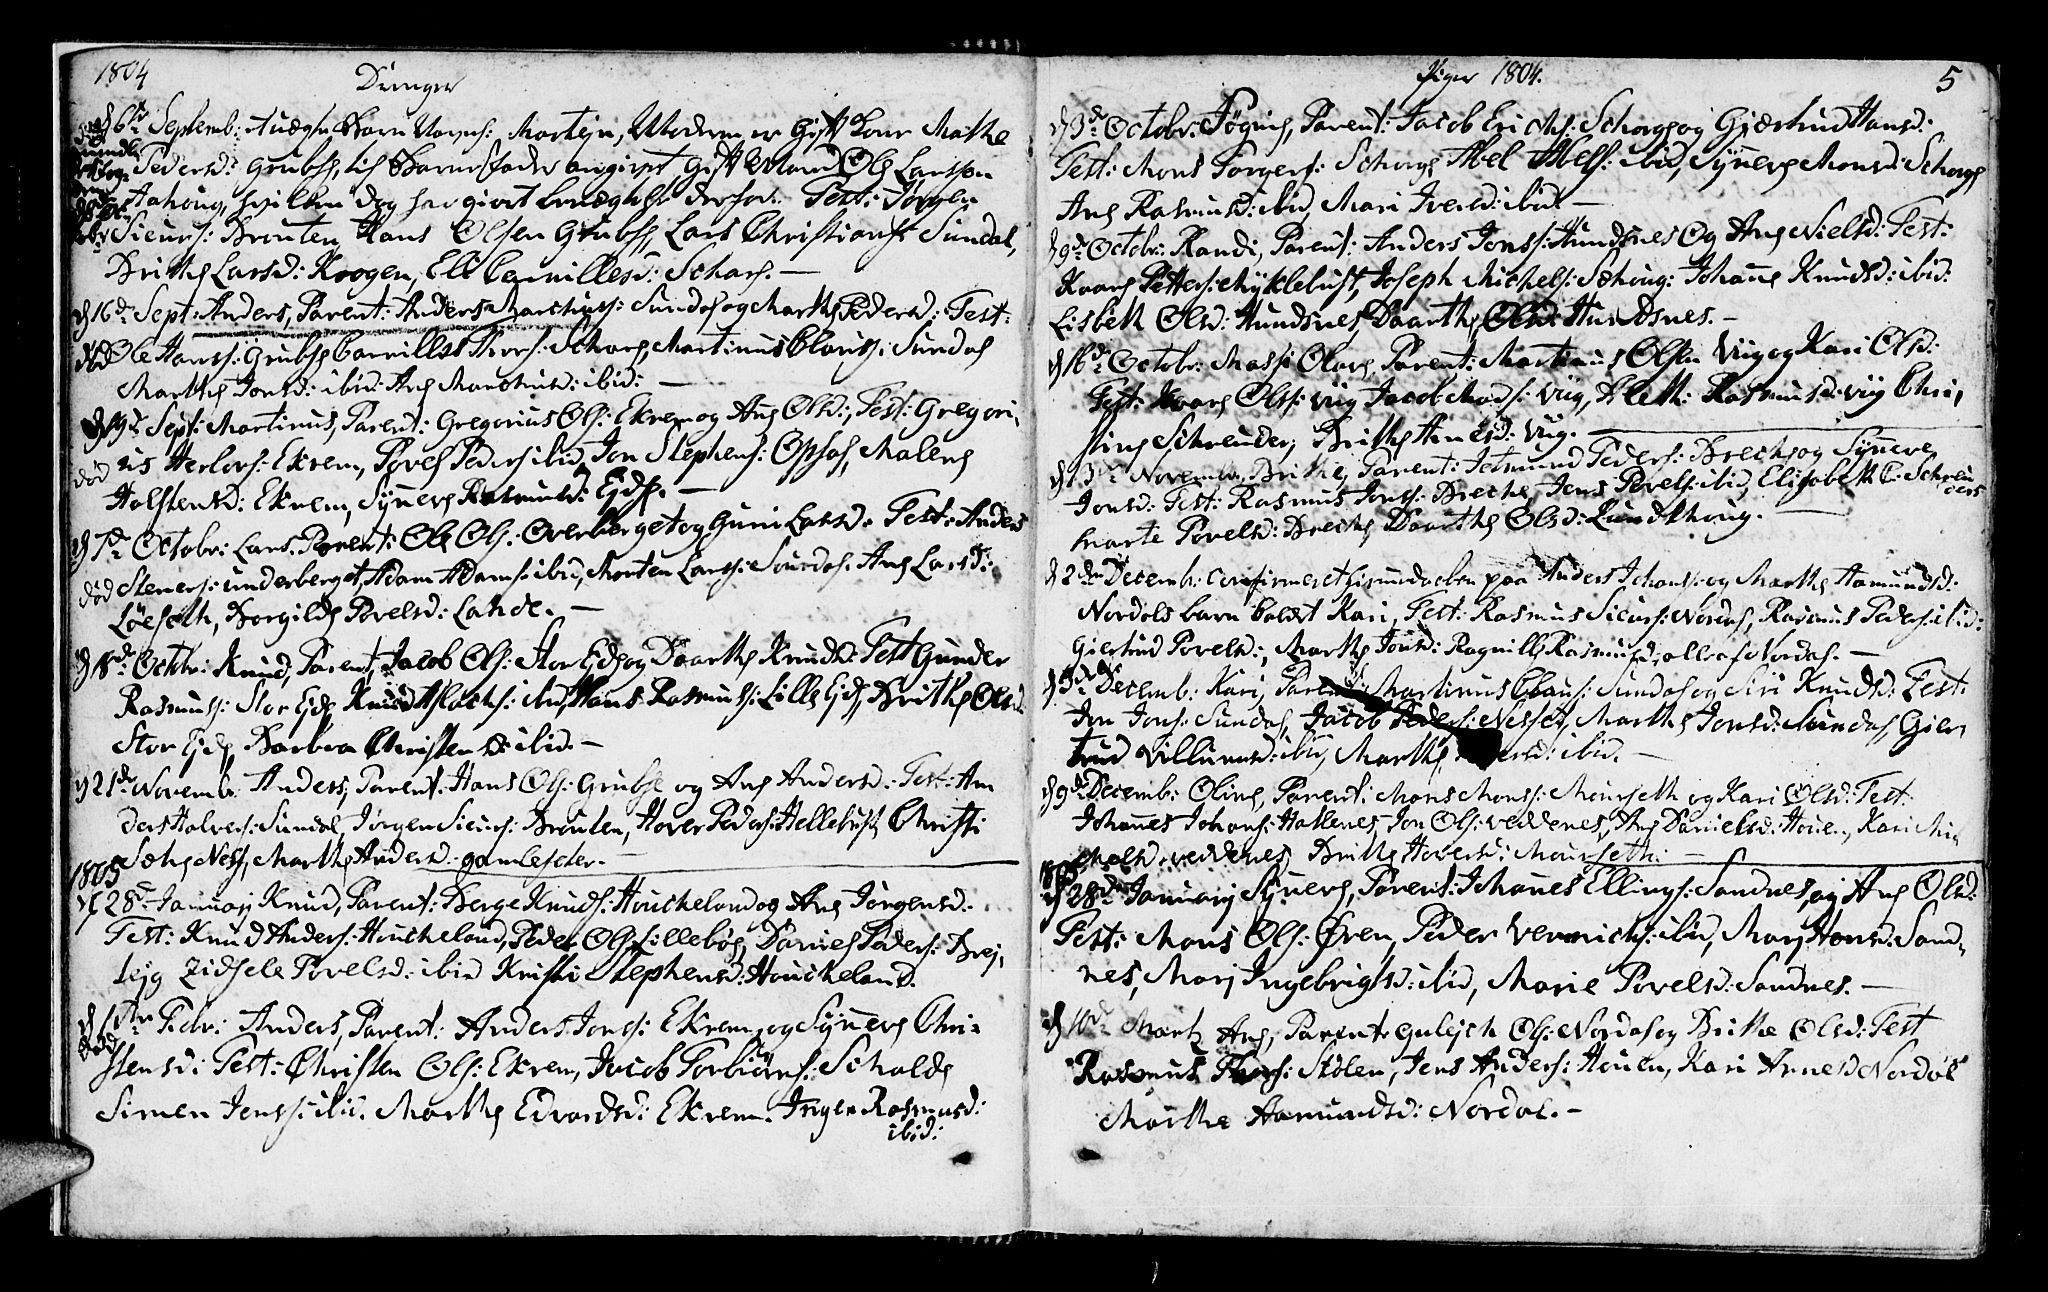 1804
Drenger
d 6te Septemb: Navnl: Morten, Moderen er Gift Kone Mathe
Pedersd: Grubse, til Barnefader angivet, Gift Mand Ole Larssen
hvilken dog har giort benægtelse derfor. Test: Jørgen
Siurs: Brouten, Hans Olsen Grubse, Lars Christians: Sundal,
Brithe Larsd: Krogen, Eli Camillesd: Schare. —
d 16de Sept: Anders, Parent: Anders Martinus: Sundal og Marthe Pedersd: Test:
død Ole Hans: Grubse Camillus Thors: Schare, Martinus Claus: Sundal
Marthe Jonsd: ibid: Ane ibid: —
d 19de Sept: Martinus, Parent: Gregorius Ols: Ekrem og Ane Olsd:, Test: Gregori,
død us Herlovs: Ekrem, Povel Peders: ibid Jon Stephens: Opsal, Malene
Holstensd: Ekrem, Synneve Rasmusd: Ejde. —
d 7de Octobr: Lars, Parent: Ole Ols: Overberget og Guri Larsd: Test: Anders
død Steners: underberget, Adam Adams: ibid, Morten Lars: Sourdal Ane Larsd:
Løeseth, Borgilde Povelsd: Lande. —
d 18de Octobr: Knud, Parent, Jacob Ols: Stor Ejde og Daarthe Knudsd: Test Gunder
Rasmus: Stor Ejde, Knud Aslachs: ibid, Hans Rasmus: Lille Ejde, Brithe Olsd
Stor Ejde Barbra Christensd: ibid. —
d 21de Novemb: Anders, Parent: Hans Ols: Grubse og Ane Andersd: Test: An
ders Halvors: Sundal, Jørgen Siurs: Brouten, Hover Peders: Hellebust, Christi
Sæhe Nesse, Marthe Andersd: gamlesæter. —
1805
d 28de Januarj Knud, Parent: Berge Knuds: Houcheland og Ane Jørgensd.
Test: Knud Anders: Houcheland, Peder Ols: Sillebøe, Daniel Peders: Brej,
tejg Zidsele Povelsd: ibid Kristi Stephensd: Houckeland.
d 1ste Febr: Anders, Parent: Anders Jons: Ekrem, og Synneve Chri-
stensd: Test: Christen Ols: Ekrem, Jacob Torbiørns: Scholde
Simen Jens: ibid. Marthe Edvardsd: Ekrem. Inger Rasmusd:
ibid:
Piger 1804.
5
d 3de Octobr: Parent: Jacob Erichs: Schorge og Giærtrud Hansd:
Test: Mons Schorge Abel Abels: ibid, Synneve Monsd: Schorge
Ane Rasmusd: ibid, Mari Iversd: ibid —
d 9de Octobr: Randi, Parent: Anders Jons: Hundsnes Og Ane Nielsd: Test:
Kaare Petters: Myklebust, Joseph Michels: Sæhoug: Johanne Knudsd: ibid:
Lisbeth Olsd: Hundsnes, Daarthe Olsd: Hundsnes. —
d 16de Octobr: Massi Olave, Parent: Martinus Olsen Viig og Kari Olsd:
Test: Kaare Ols: Viig Jacob Mads: Viig, Aleth: Rasmusd: Viig Chri,
stine Schreuder, Brithe Arnesd: Viig. —
d 13de Novemb: Brithe, Parent: Jetmund Peders: Breche og Synneve
Jonsd: Test: Rasmus Jons: Breche, Jens Povels: ibid, Elisabeth C: Schreu
ders
Marte Povelsd: Breche Daarthe Olsd: Lundshoug. —
d 2den Decemb: Confirmeret Hiemedaaben paa Anders Johans: og Marthe Aamundsd:
Nordals barn kaldet Kari, Test: Rasmus Siurs: Nordal, Rasmus Peders: ibid:
Giertrud Povelsd:, Marthe Jonsd: Ragnille Rasmusd, alle af Nordal. —
d 3de Decemb: Kari, Parent: Martinus Claus: Sundal og Siri Knudsd: Test:
Jon Jons: Sundal, Jacob Peders: Nesset, Marthe Jonsd: Sundal, Gier,
trud Villumsd: ibid, Marthe ibid. —
d 9de Decemb: Oline, Parent: Mons Mons: Mourseth og Kari Olsd: Test:
Johannes Johans: Hatlenes, Jon Ols: Veddenes, Ane Danielsd: Houen, Kari Mi-
chelsd: Veddenes, Brithe Hoversd: Mourseth: —
1805
d 28de Januarj Synneve, Parent: Johannes Ellings: Sandnes, og Ane Olsd:
Test: Mons Ols: Øren, Peder ibid, Marj Hansd: Sand,
nes, Marj Ingebrigtsd: ibid, Marie Povelsd: Sandnes. —
d 10de Martz Ane, Parent: Gulejch Ols: Nordal og Brithe Olsd: Test
Rasmus Stølen, Jens Anders: Houen, Kari Arnesd Nordal
Marthe Aamundsd: Nordal. —